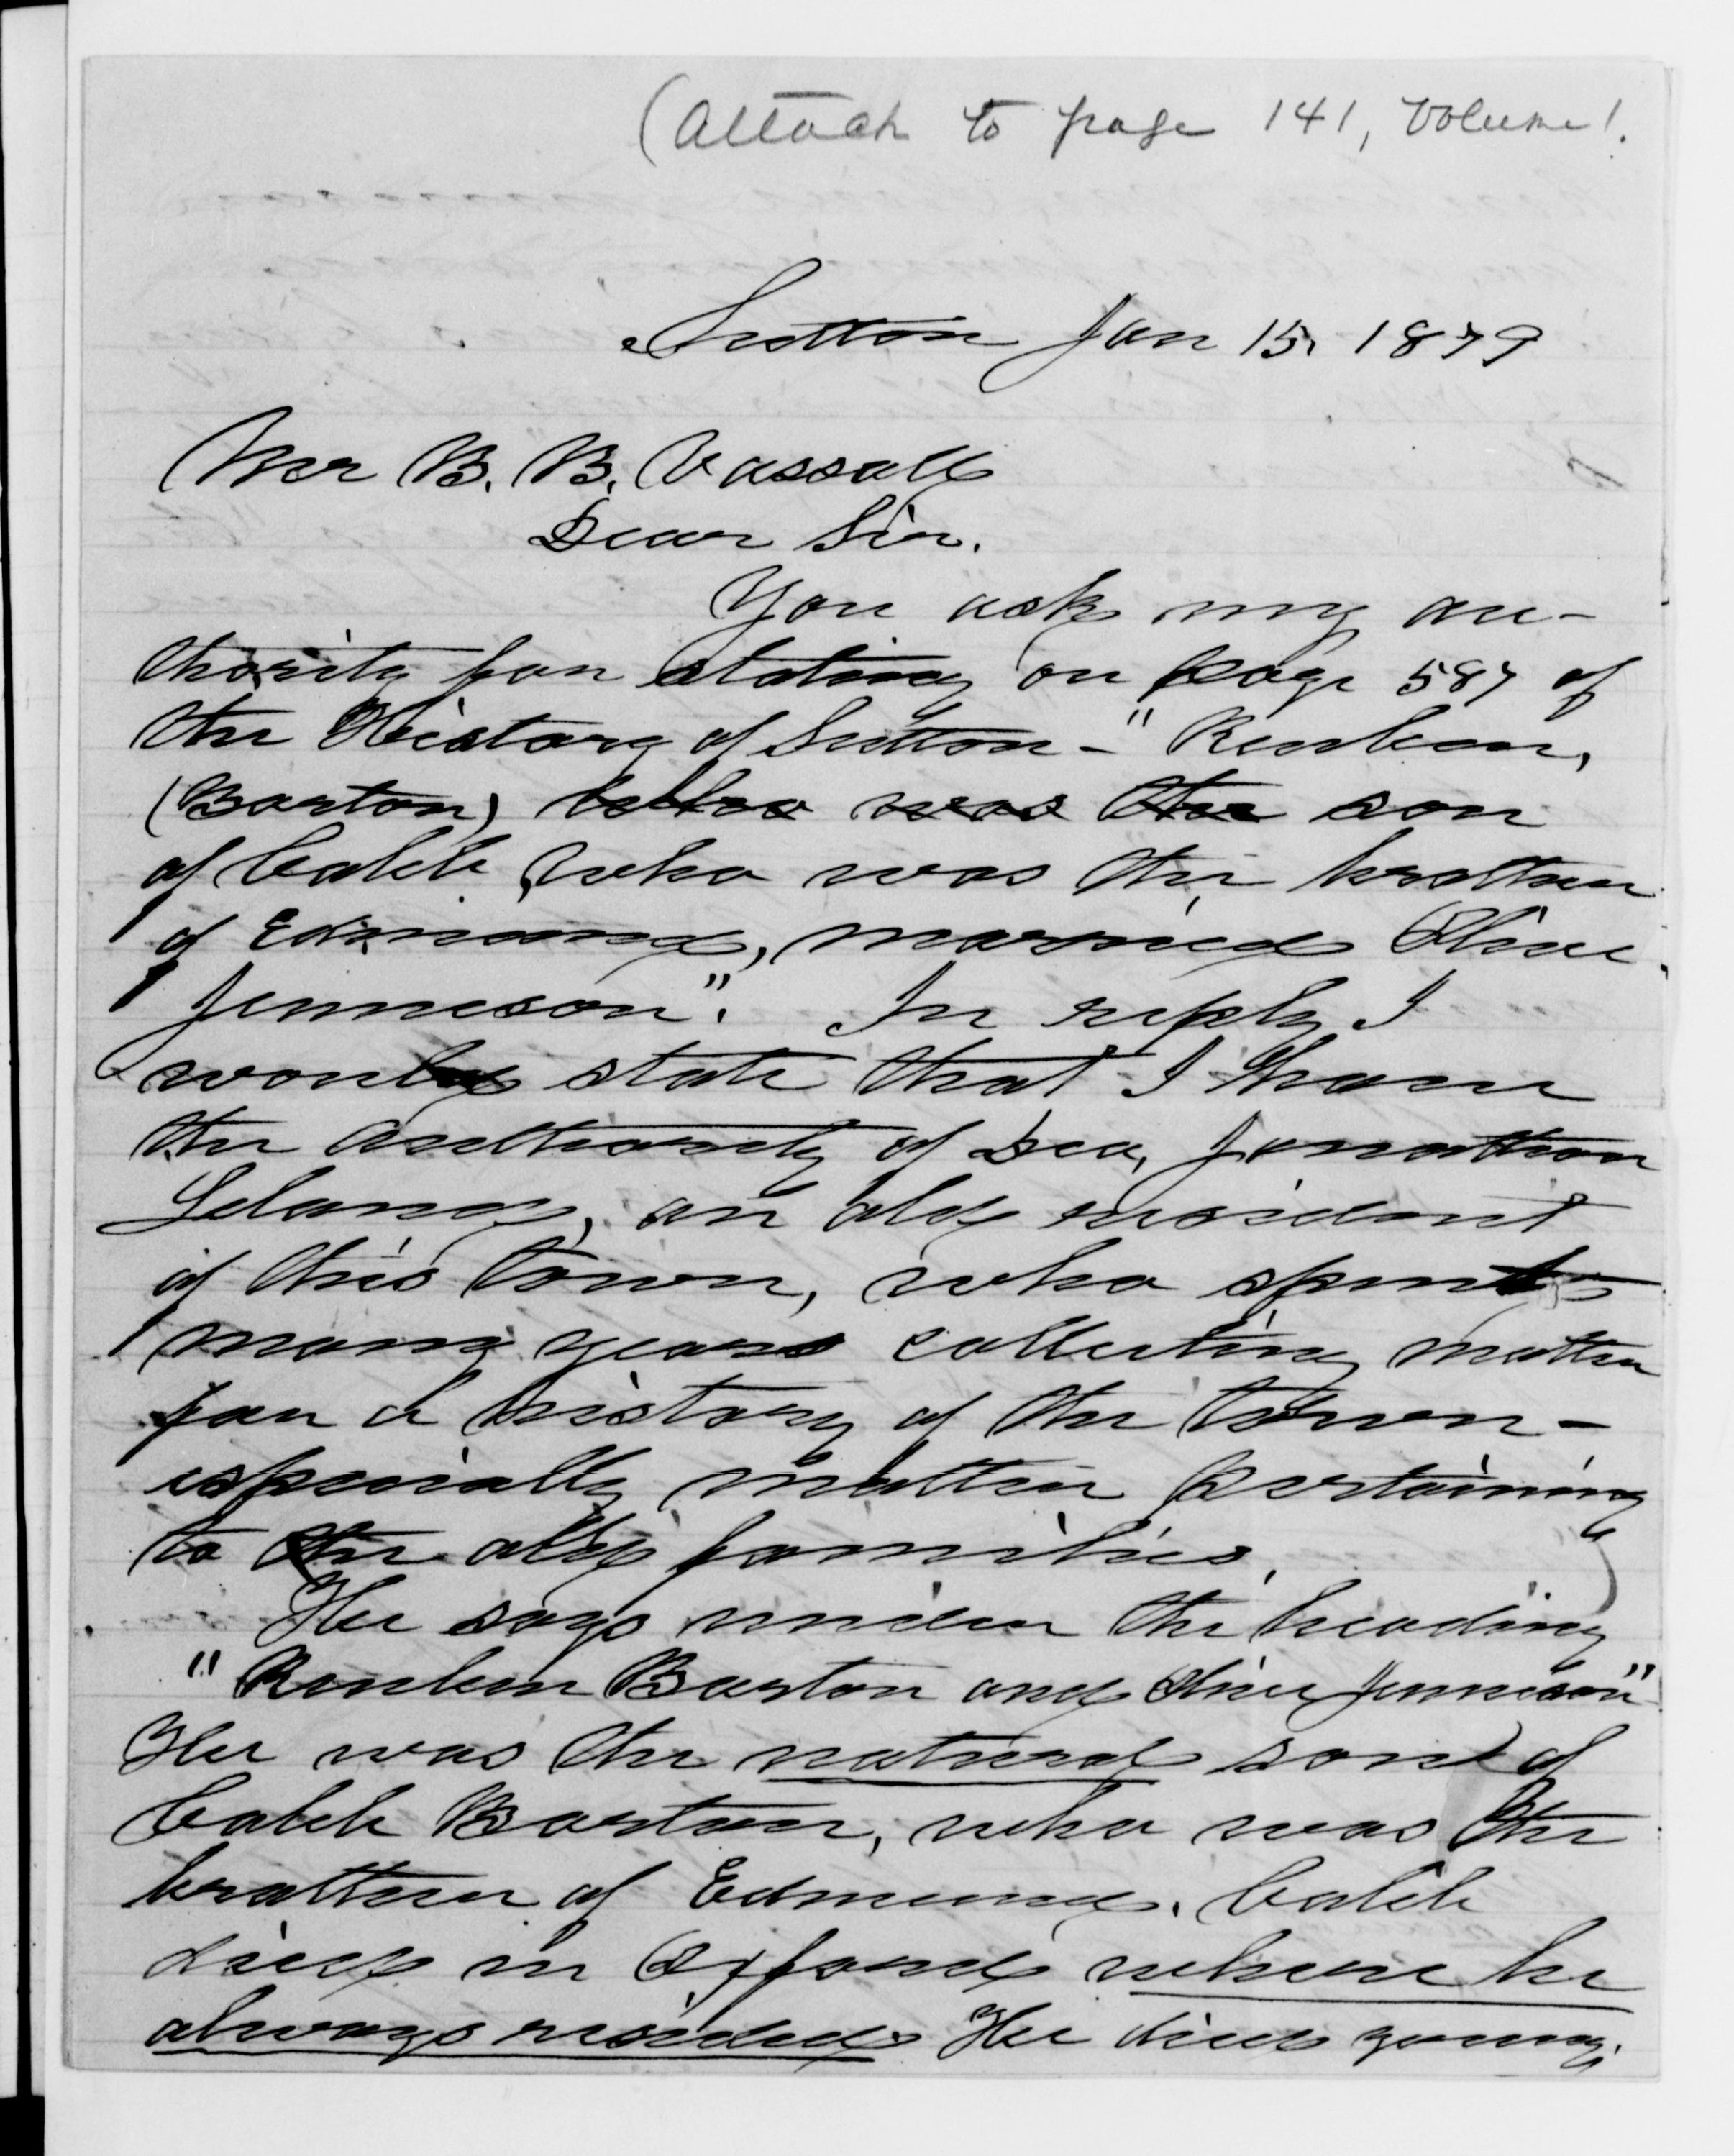 (Attach to page 141, Volume 1.
Sutton Jan 15, 1879
Mr B. B. Vassall
Dear Sir.
You ask my au-
thority for stating on page 587 of
the History of Sutton - "Reuben,
(Barton) who was the son
of Caleb, who was the brother
of Edmund, married Olive
Jennison". In reply I
would state that I have
the authority of Dea. Jonathan
Leland, an old resident
of this town, who spent
many years collecting matter
for a history of the town -
especially matter pertaining
to the old families.
He says under the heading
"Reuben Barton and Olive Jennison"
He was the natural son of
Caleb Barton, who was the
brother of Edmund. Caleb
died in Oxford where he
always resided. He died young.